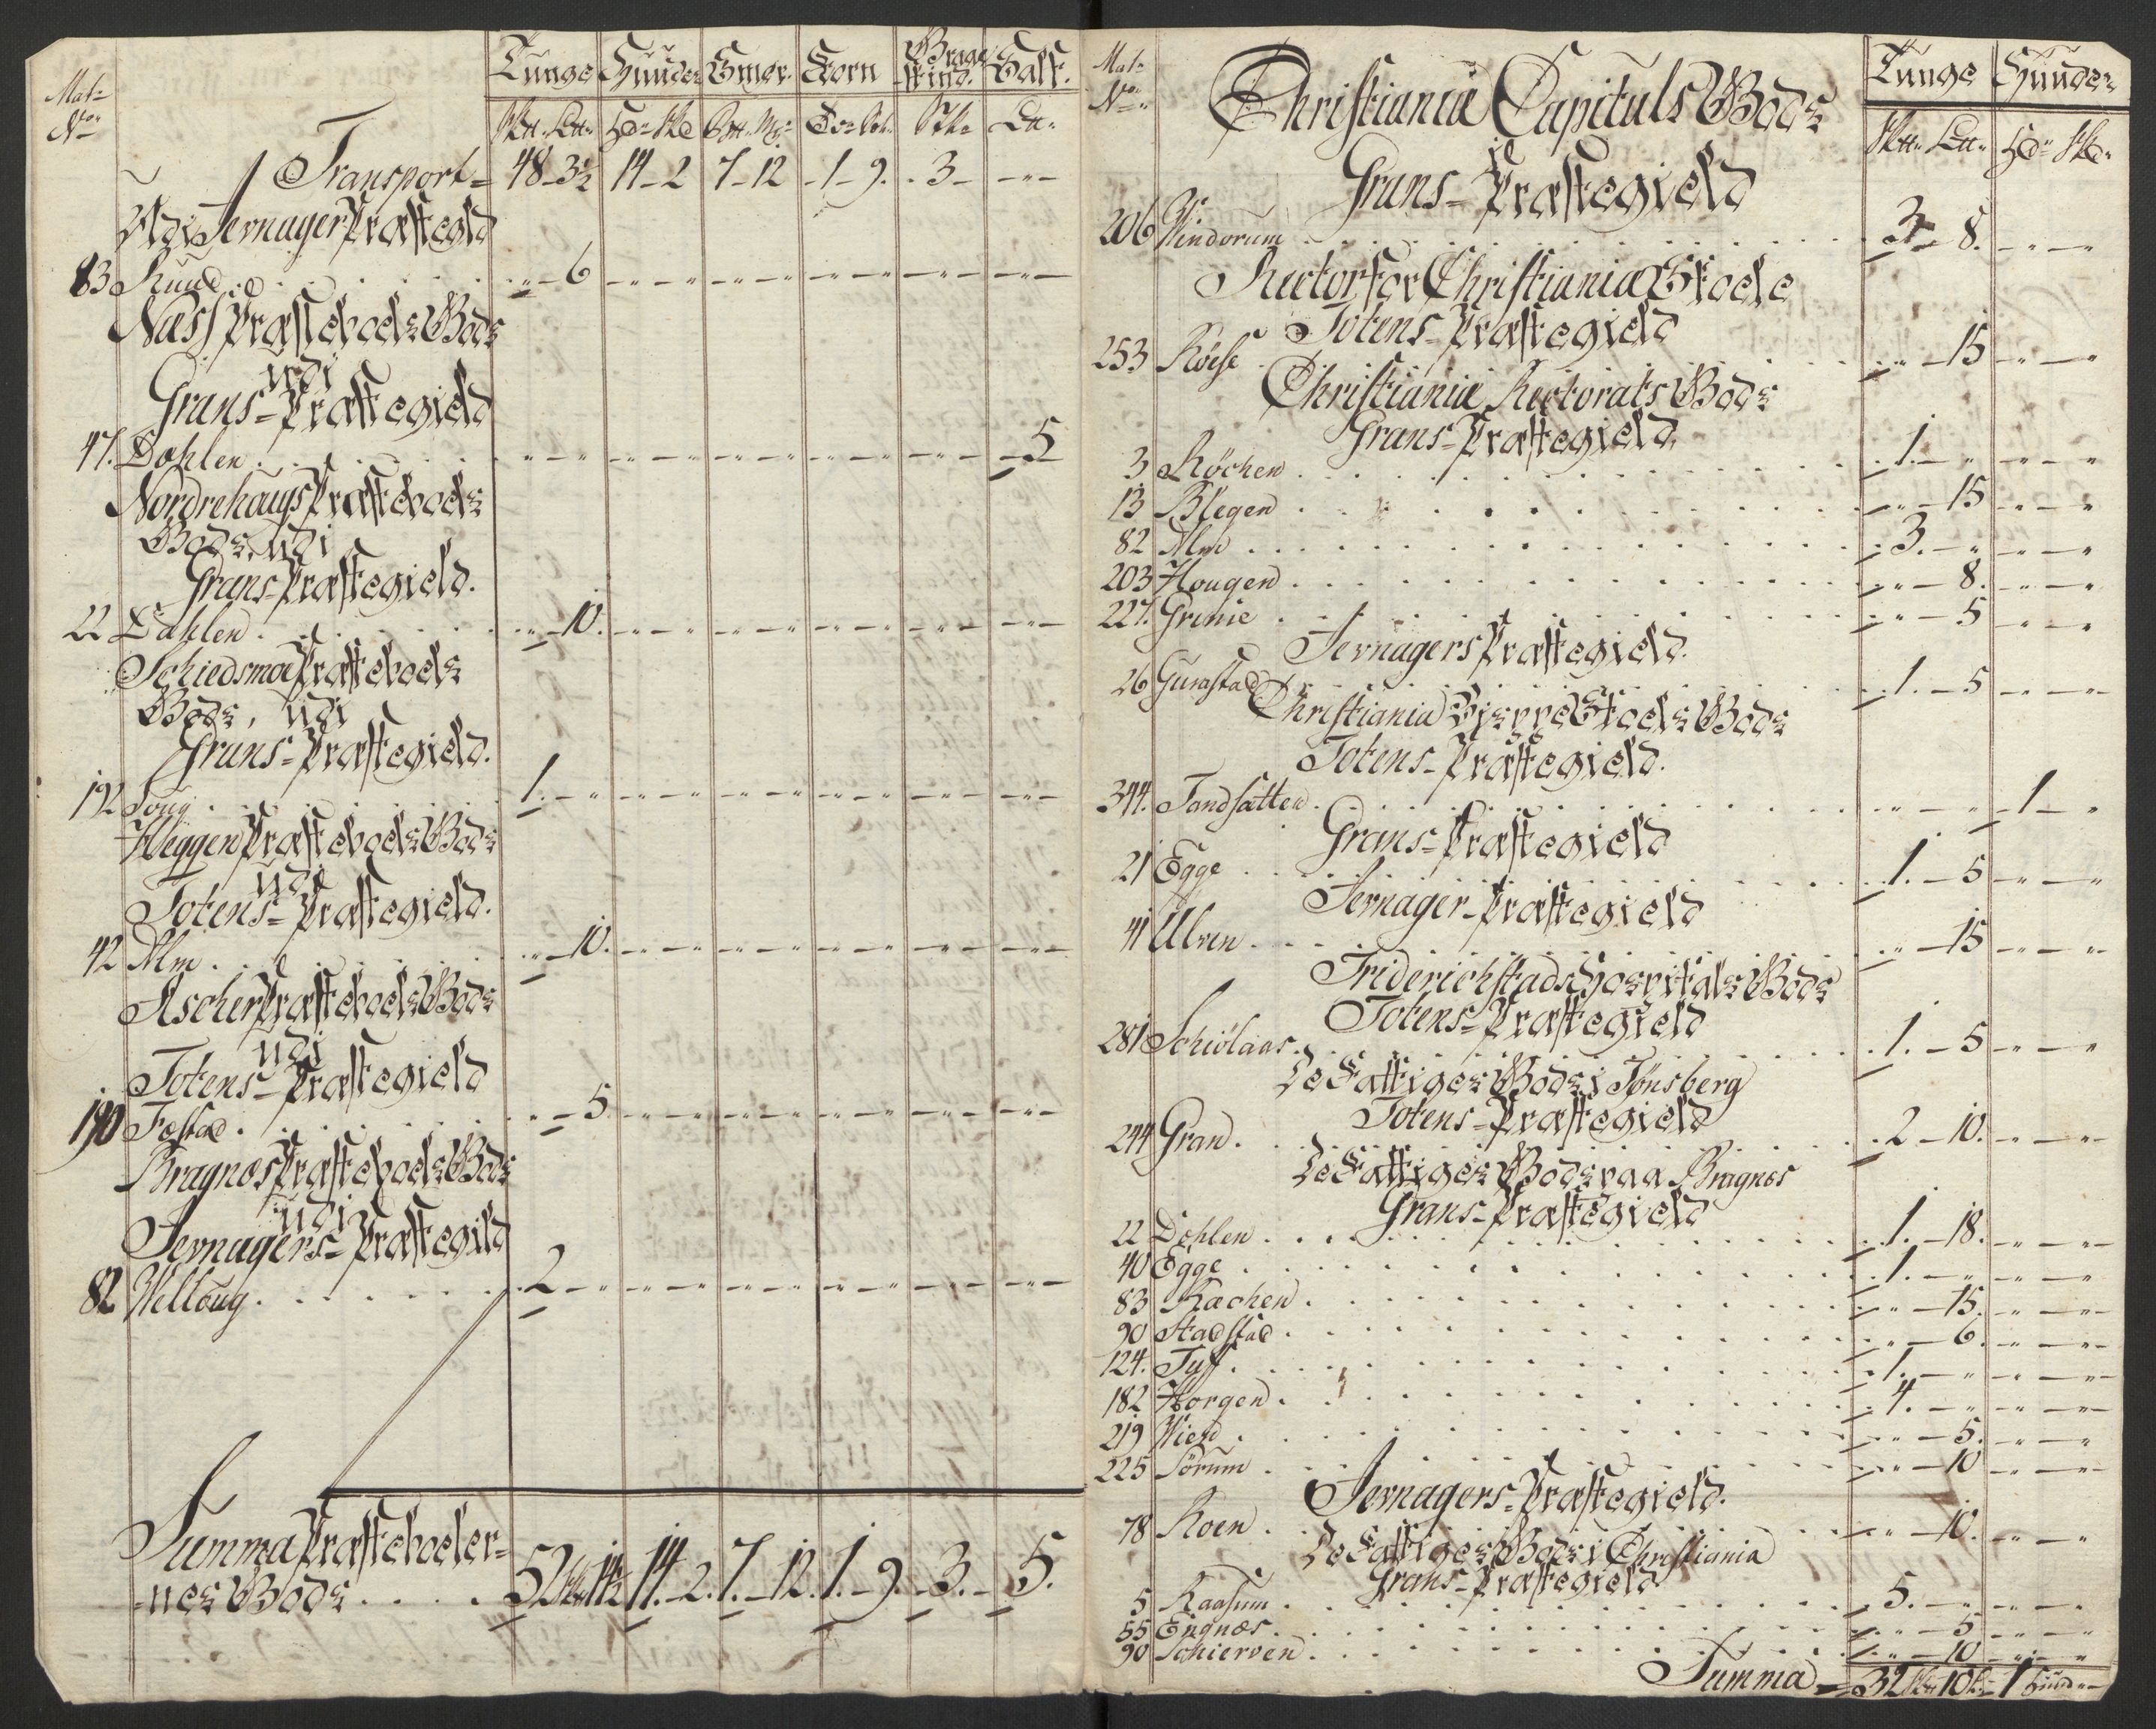 Mat= No
Tunge Huuder Smør. Korn Brage skind. Salt.
Sktt. Ltt. Hd. Skd Btt. Mr. Stk.
Transport= 48 - 3½ 14 - 2 7 - 12 - 1 - 9. - 3 - - " -
Udi Jevnager Præstegld
83 Ruud . . . . . " - 6 - " - " - " - " -
Næss Præsteboels Gods
udi
Grans- Præstegield
47. Dahlen . . . . . 5
Nordrehaugs Præsteboels
Gods, udi
Grans- Præstegield.
22 Dahlen . . . . . " - 10. - " -
Schiedsmoe Præsteboels
Gods, udi
Grans- Præstegield.
192 Toug . . . . 1. - "
Heggen Præsteboels Gods
udi
Totens- Præstegield.
42 Alm . . . . . " - 10.
Ascher Præsteboels Gods
udi
Totens- Præstegield
190 Fostad . . . . . " - 5.
Bragnæs Præsteboels Gods
udi
Jevnagers- Præstegild
82 Velloug . . . . . 2 - "
Summa Præsteboeler=
=nes Gods . . . . 52 14½ 14. - 2. 7. - 12. 1. - 9. - 3. - 5.
Mat= No
Christiania Capituls Gods
Tunge Huuder
Sktt. Ltt. Hd. Skd.
Grans- Præstegield
206 Vindorum . . . . 3 - 8. - " -
Rector for Christiania Skoele
Totens- Præstegield
253 Röise . . . . " - 15 - " - "
Christiania Rectorats Gods
Grans- Præstegield
3 Røchen . . . . 1. - " - " - "
13 Blegen . . . . " - 15 - " - "
82 Alm . . . . 3. - " - " - "
203 Hougen . . . . " - 8. - " - "
227. Grinie . . . . " - 5 - " - "
Jevnagers Præstegield.
26 Gunastad . . . . 1. - 5 - " -
Christiania Bispe Stoels Gods
Totens- Præstegield.
344. Tandsætten . . . . " - " 1 - "
Grans- Præstegield
21 Egge . . . . 1. - 5 - " - "
Jevnager- Præstegield
41 Ulven . . . . " - 15 - " - "
Friderichstads Hospitals Gods
Totens- Præstegield
281 Schiölaas . . . . 1. - 5 - " - "
De Fattiges Gods i Tönsberg
Totens- Præstegield
244 Gran . . . . 2 - 10. - " -
De Fattiges Gods paa Bragnes
Grans- Præstegield
22 Dahlen . . . . 1. - 18. - " -
40 Egge . . . . 1. - " - " - "
83 Rachen . . . . " - 15. - " - "
90 Stadstad . . . . " - 6. - " - "
124. Tuff . . . . 1. - " - " -
182 Horgen . . . . 4. - " - " -
219 Vien . . . . " - 5. - " - "
225 Sörum . . . . " - 10 - " -
Jevnagers- Præstegield.
78 Roen . . . . " - 10. - " - "
De Fattiges Gods i Christiania
Grans- Præstegield
5 Raasum . . . . 5. - " - " - "
55 Engnæs . . . . " - 5 - " - "
90 Schierven . . . . " - 10 - " - "
Summa = 32 10 1